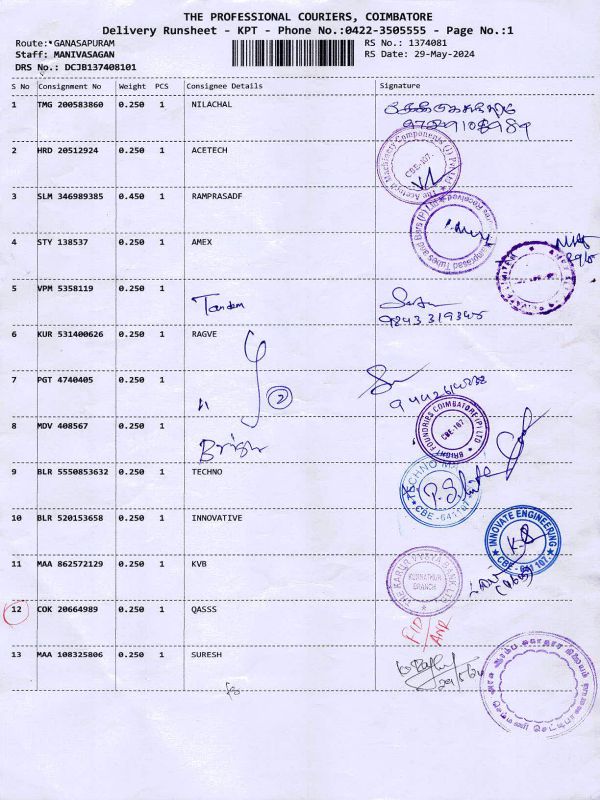 THE PROFESSIONAL COURIERS, COIMBATORE
Delivery Runsheet - KPT - Phone No.:0422-3505555 - Page No.:1
Route:*GANASAPURAM
Staff: MANIVASAGAN
DRS No.: DCJB137408101
RS No.: 1374081
RS Date: 29-May-2024
S No Consignment No Weight PCS Consignee Details Signature
1 TMG 200583860 0.250 1 NILACHAL
9789108989
2 HRD 20512924 0.250 1 ACETECH
The Acetech Machinery Components (I) Pvt Ltd
CBE-107.
3 SLM 346989385 0.450 1 RAMPRASADF
Tubes and Bars (P) Ltd
4 STY 138537 0.250 1 AMEX
5 VPM 5358119 0.250 1 Tandem
9843319345
6 KUR 531400626 0.250 1 RAGVE
7 PGT 4740405 0.250 1
2
8 MDV 408567 0.250 1 Bright
BRIGHT FOUNDRIES COIMBATORE (P) LTD
CBE-107
9 BLR 5550853632 0.250 1 TECHNO
TECHNO
CBE - 641 107.
10 BLR 520153658 0.250 1 INNOVATIVE
INNOVATE ENGINEERING
CBE - 641 107.
11 MAA 862572129 0.250 1 KVB
THE KARUR VYSYA BANK LTD
KUNNATHUR
BRANCH
12 COK 20664989 0.250 1 QASSS
13 MAA 108325806 0.250 1 SURESH
29/5/24
அரசு ஆரம்ப சுகாதார நிலையம்